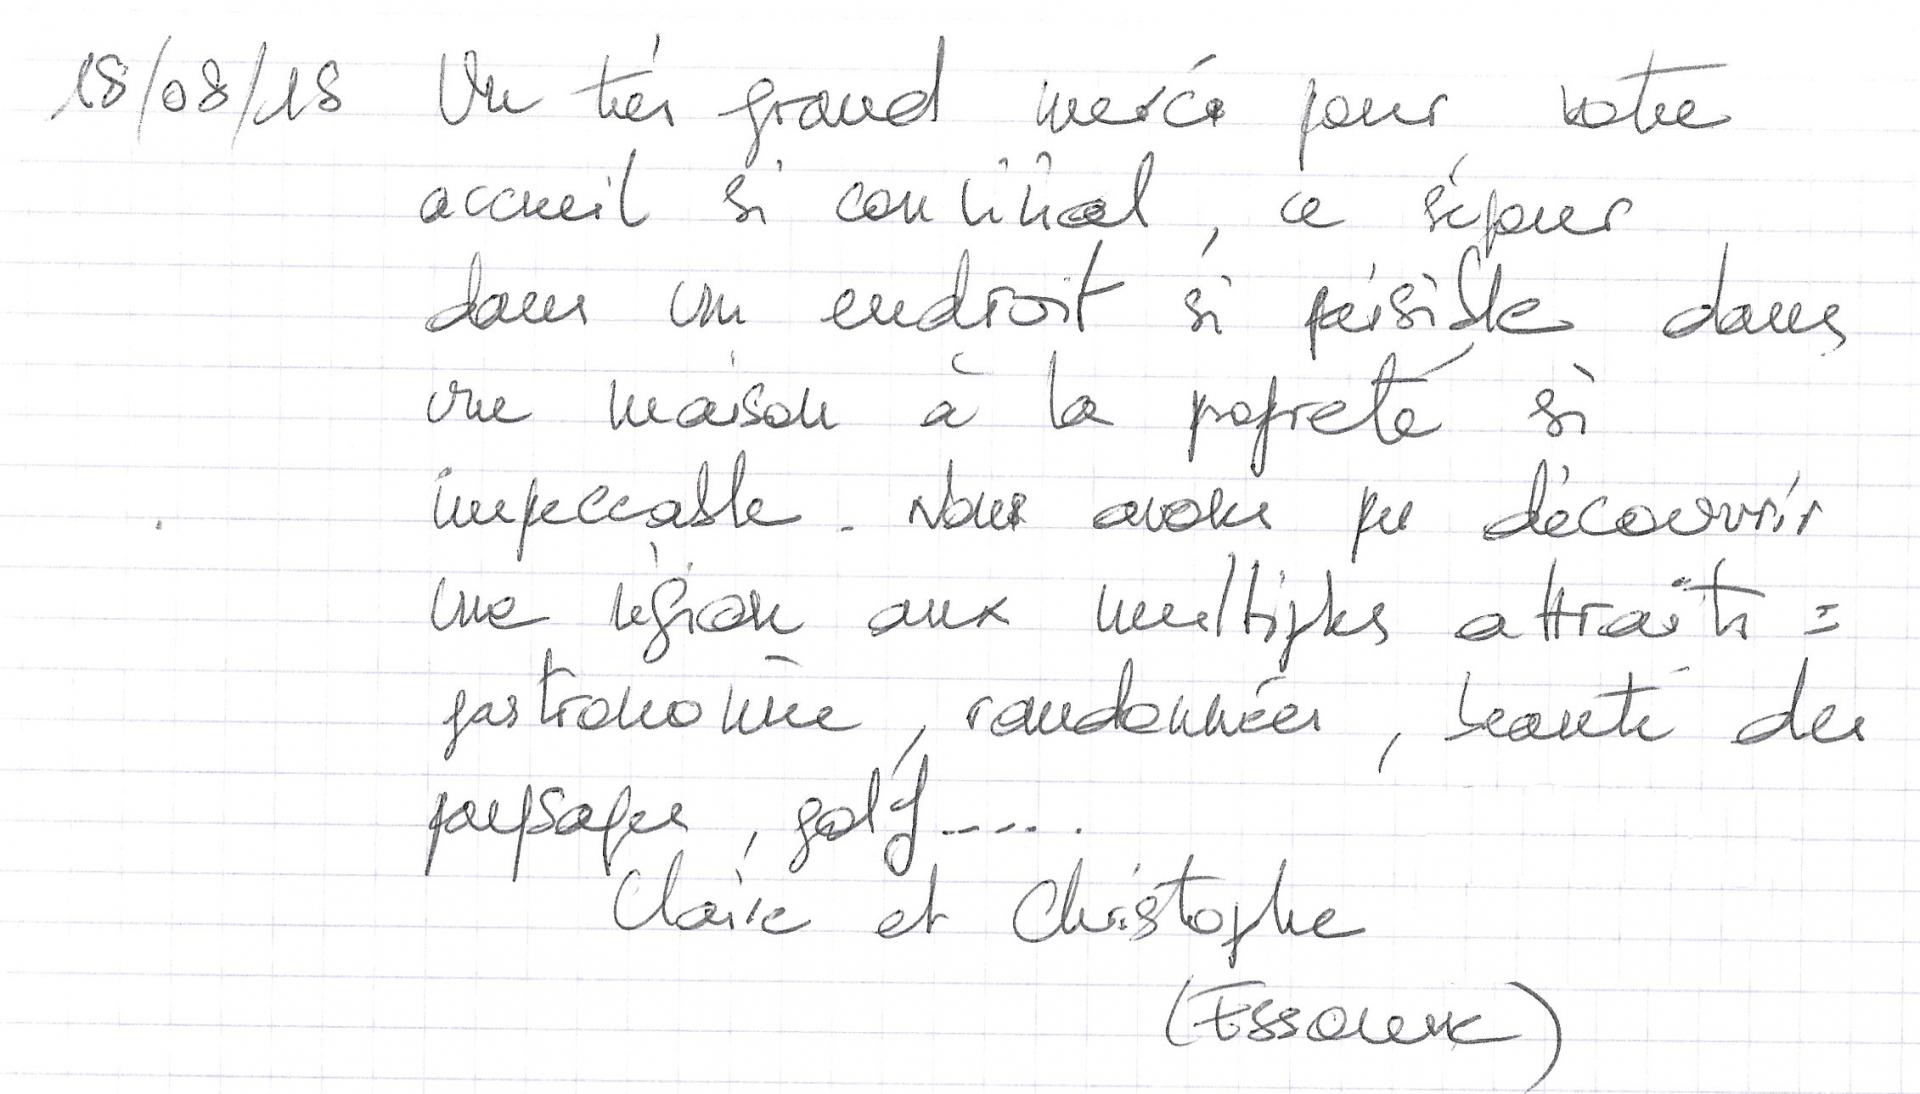 18/08/18 Un très grand merci pour votre
accueil si convivial, ce séjour
dans un endroit si paisible dans
une maison à la propreté si
impeccable. Nous avons pu découvrir
une région aux multiples attraits :
gastronomie, randonnées, beauté des
paysages, golf.....
Claire et Christophe
(Essonne)